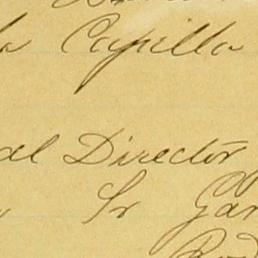 la Capilla
al Director
Sr Gar
Rod